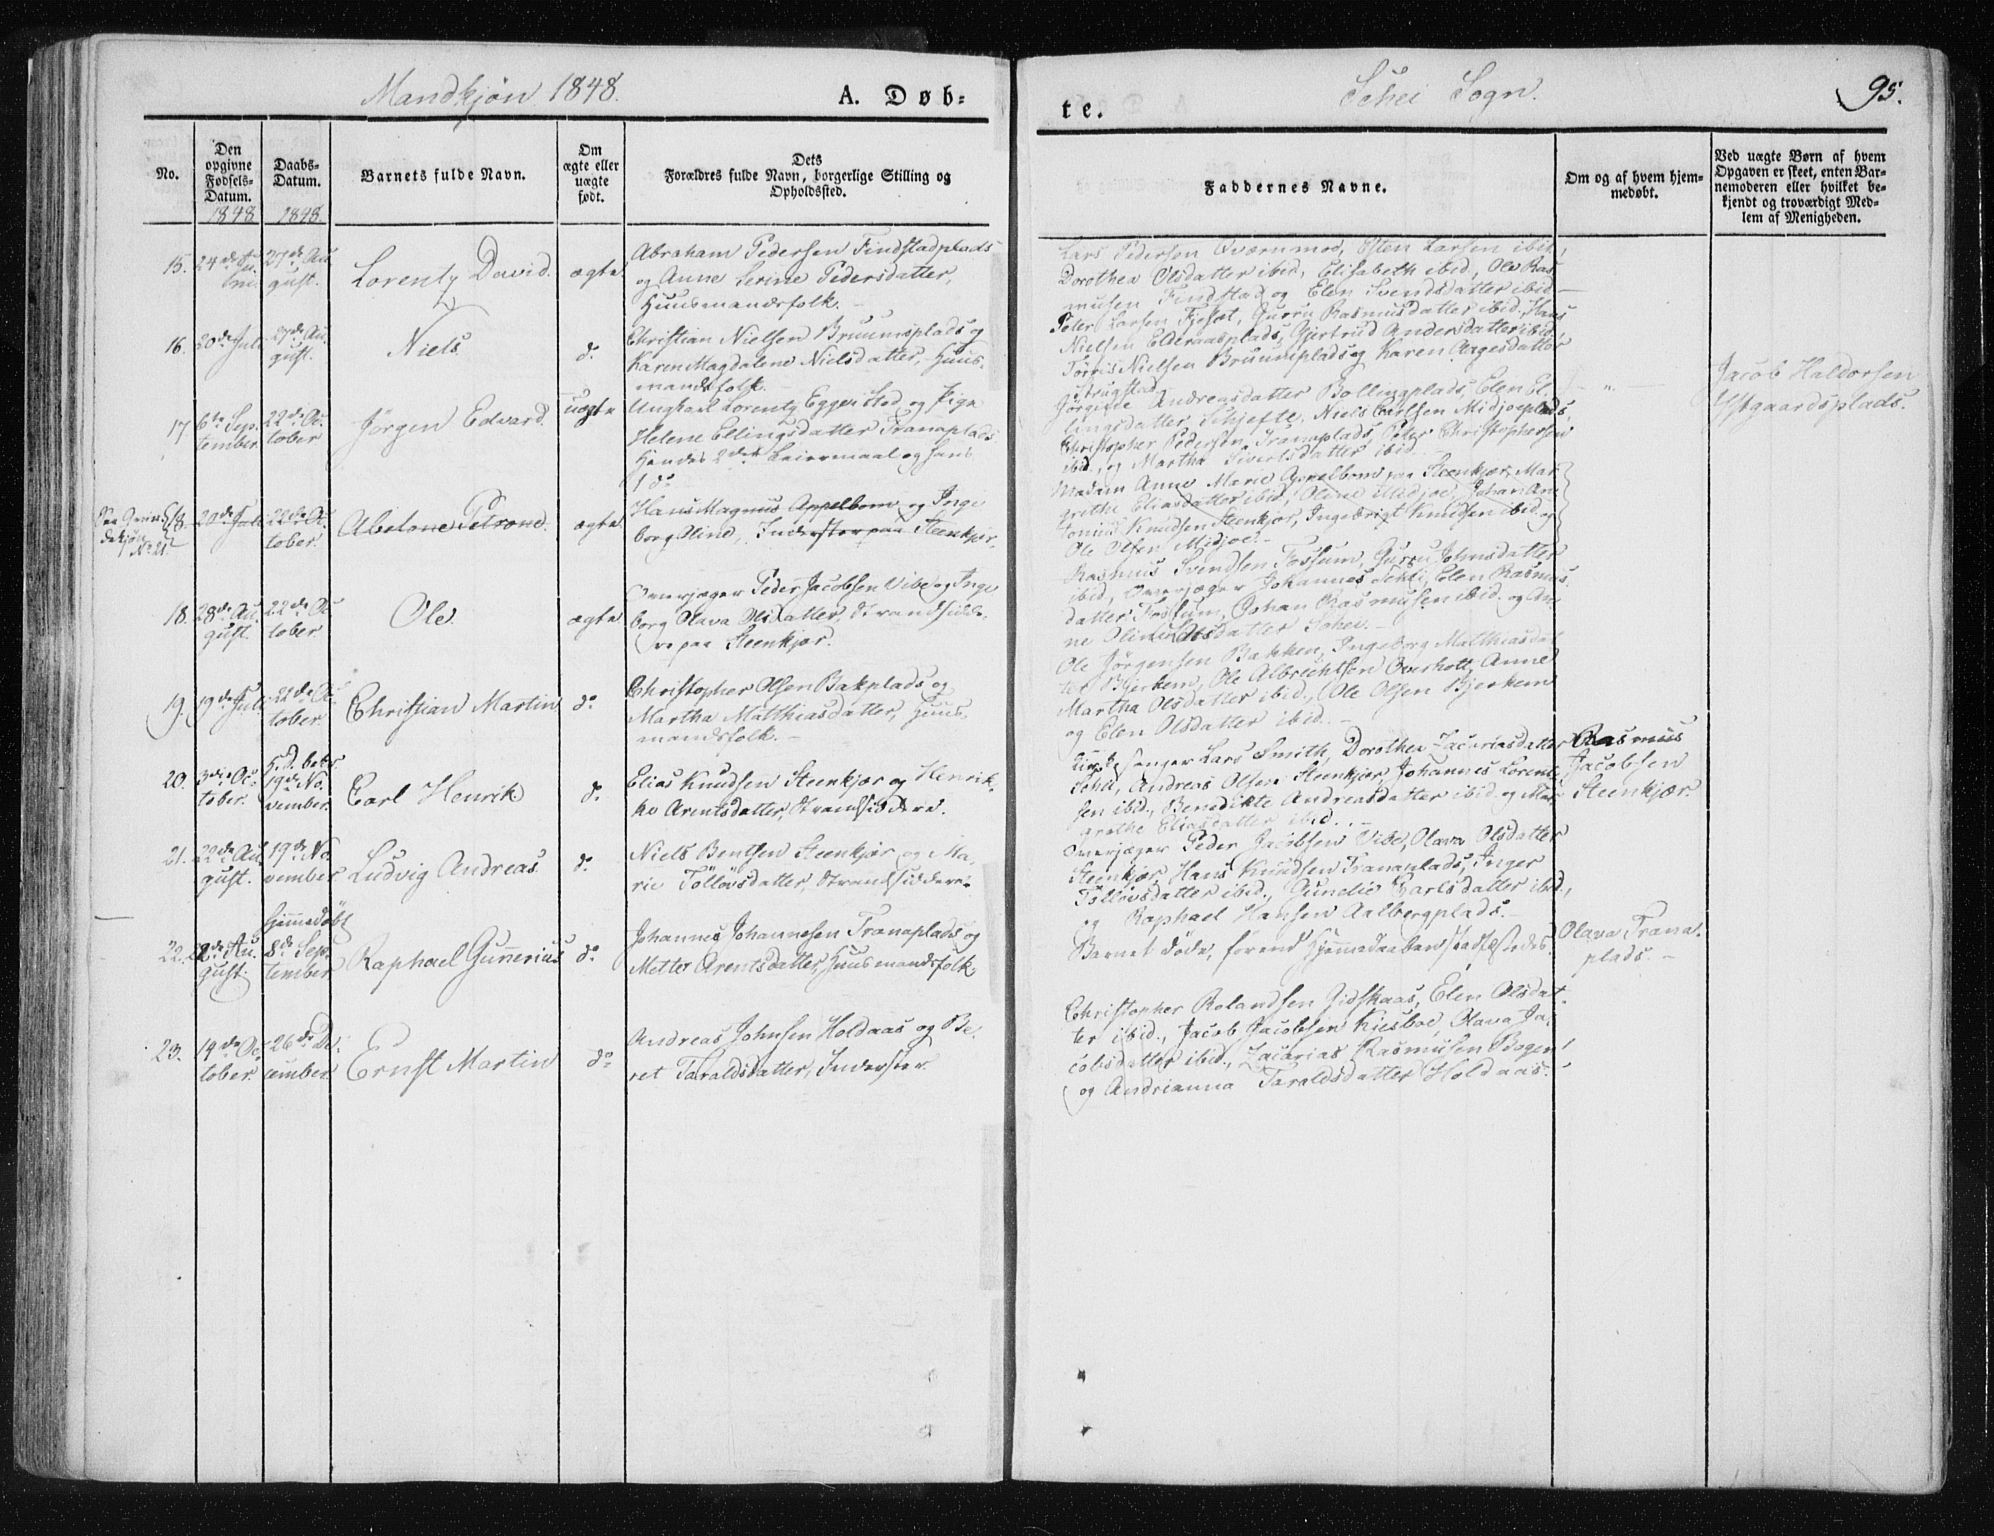 Mandkjøn 1848.
A. Døb=
te.
Schei Sogn.
95.
No.
Den
opgivne
Fødsels-
Datum.
1848
Daabs-
Datum.
1848
Barnets fulde Navn.
Om
ægte eller
uægte
født.
Dets
Forældres fulde Navn, borgerlige Stilling og
Opholdssted.
Faddernes Navne.
Om og af hvem hjem-
medøbt.
Ved uægte Børn af hvem
Opgaven er skeet, enten Bar-
nemoderen eller hvilket be-
kjendt og troværdigt Med-
lem af Menigheden.
15.
27de Au
gust.
Lorentz David.
ægte
Abraham Pedersen Findstadplads
og Anne Serine Pedersdatter,
Huusmandsfolk.
Lars Pedersen Qværnmoe, Osten Larsen ibid,
Dorothea Olsdatter ibid, Elisabeth ibid, Ole Ras
musen Findstad og Elen Svendsdatter ibid
16.
20de Juli
27de Au
gust.
Niels
do
Christian Nielsen Bruumsplads og
Karen Magdalene Nielsdatter, Huus-
mandsfolk
Peter Larsen Fjesæt, Gurru Rasmusdatter ibid, Hans
Nielsen Elderaasplads, Gjertrud Andersdatter ibid,
Tørris Nielsen Bruumsplads og Karen Aagesdatter
17
6te Sep
tember
22de Oc
tober
Jørgen Edvard
uægte
Ungkarl Lorentz Eggen Sted og Pige
Helene Ellingsdatter Tranaplads
Hendes 2det Leiermaal og hans
1 do
Andreasdatter Bollingplads, Elen El-
lingsdatter Schjefte, Niels Carlsen Midjoeplads,
Christopher Pedersen Tranaplads, Peter Christophersen
ibid, og Martha Sivertsdatter ibid
Jacob Haldorsen
Østgaardsplads.
See Qvin
dekjøn
No 21
18.
20de Juli
22de Oc
tober.
Abelone Petrone
ægte
Hans Magnus Appelbom og Inge
borg Oline, Inderster paa Steenkjær.
Madam Anne Marie Appelbom paa Steenkjær, Mar
grethe Eliasdatter ibid, Oline Midjoe, Johan An
tonius Knudsen Steenkjær, Ingebrigt Knudsen ibid og
Ole Olsen Midjoe.
18.
28de Au
gust.
22de Oc
tober
Ole.
ægte
Overjæger Peder Jacobsen Vibe og Inge
borg Olava Olsdatter, Strandsidde-
re paa Steenkjær.
Rasmus Svendsen Fossum, Gurru Johnsdatter
ibid, Overjæger Johannes Sekli, Elen Rasmus
datter Fossum, Johan Rasmusen ibid og An
ne Olina Olsdatter Schei.
19.
19de Juli
22de Oc
tober
Christian Martin
do
Christopher Olsen Bakplads og
Martha Matthiasdatter, Huus-
mandsfolk.
Ole Jørgensen Bakken, Ingeborg Matthiasdat
ter Bjerkem, Ole Albrichtsen Overholt, Anne
Martha Olsdatter ibid, Ole Olsen Bjerkem
og Elen Olsdatter ibid.
20.
3die Oc
tober.
19de No
vember.
Carl Henrik
do
Elias Knudsen Steenkjær og Henrik-
ke Arentsdatter, Strandsiddere.
Kirkesanger Lars Smith, Dorothea Zacariasdatter
Andreas Olsen Steenkjær, Johannes Lorent
sen ibid, Benedikte Andreasdatter ibid og Mar
grethe Eliasdatter ibid.
Rasmus
Jacobsen
Steenkjær.
21.
22de Au
gust.
19de No
vember
Ludvig Andreas
do
Niels Bentsen Steenkjær og Ma-
rie Tollovsdatter, Strandsiddere.
Overjæger Peder Jacobsen Vibe, Olava Olsdatter
Steenkjær, Hans Knudsen Tranaplads, Inger
Tollovsdatter ibid, Gunelie Karlsdatter ibid,
og Raphael Hansen Aalbergplads.
22.
22de Au
gust.
Hjemmedøbt
8de Sep
tember
Raphael Gunerius
do
Johannes Johannesen Tranaplads og
Mette Arentsdatter, Huusmandsfolk.
Barnet døde, forend Hjemmedaaben stadfæstedes.
Olava Trana-
plads.
23.
19de Oc
tober.
26de De-
cember.
Ernst Martin
do
Andreas Johnsen Holdaas og Be-
ret Taraldsdatter, Inderster.
Christopher Rolandsen Gidskaas, Elen Olsdat-
ter ibid, Jacob Jacobsen Kiesboe, Olava Ja-
cobsdatter ibid, Zacarias Rasmusen Bogen
og Andrianna Taraldsdatter Holdaas.